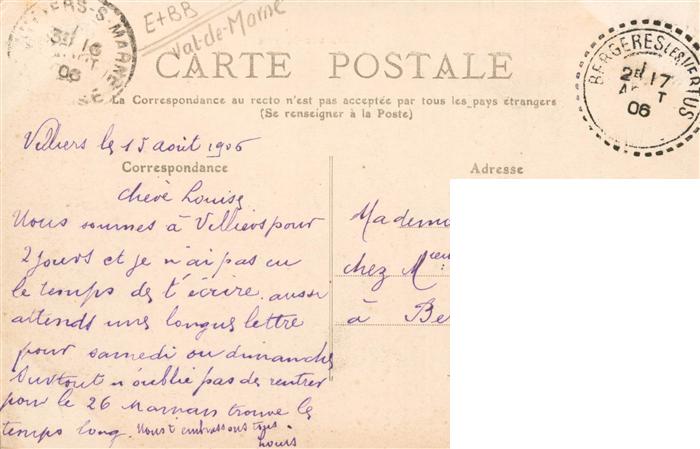 VILLIERS-S-MARNE
3E 16
AOUT
06
E+BB
Val-de-Marne
CARTE POSTALE
La Correspondance au recto n'est pas acceptée par tous les pays étrangers
(Se renseigner à la Poste)
BERGERES LES VERTUS
2E 17
AOUT
06
Villiers le 15 août 1906
Correspondance
Chère Louise
Nous sommes à Villiers pour
2 jours et je n'ai pas eu
le temps de t'écrire. aussi
attends une longue lettre
pour samedi ou dimanche
Surtout n'oublie pas de rentrer
pour le 26 Maman trouve le
temps long. Nous t'embrassons tous.
Louis
Adresse
Mademo
chez M
à Be